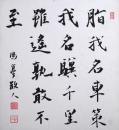 脂我名車策
我名驥千里
雖遙孰敢不
至